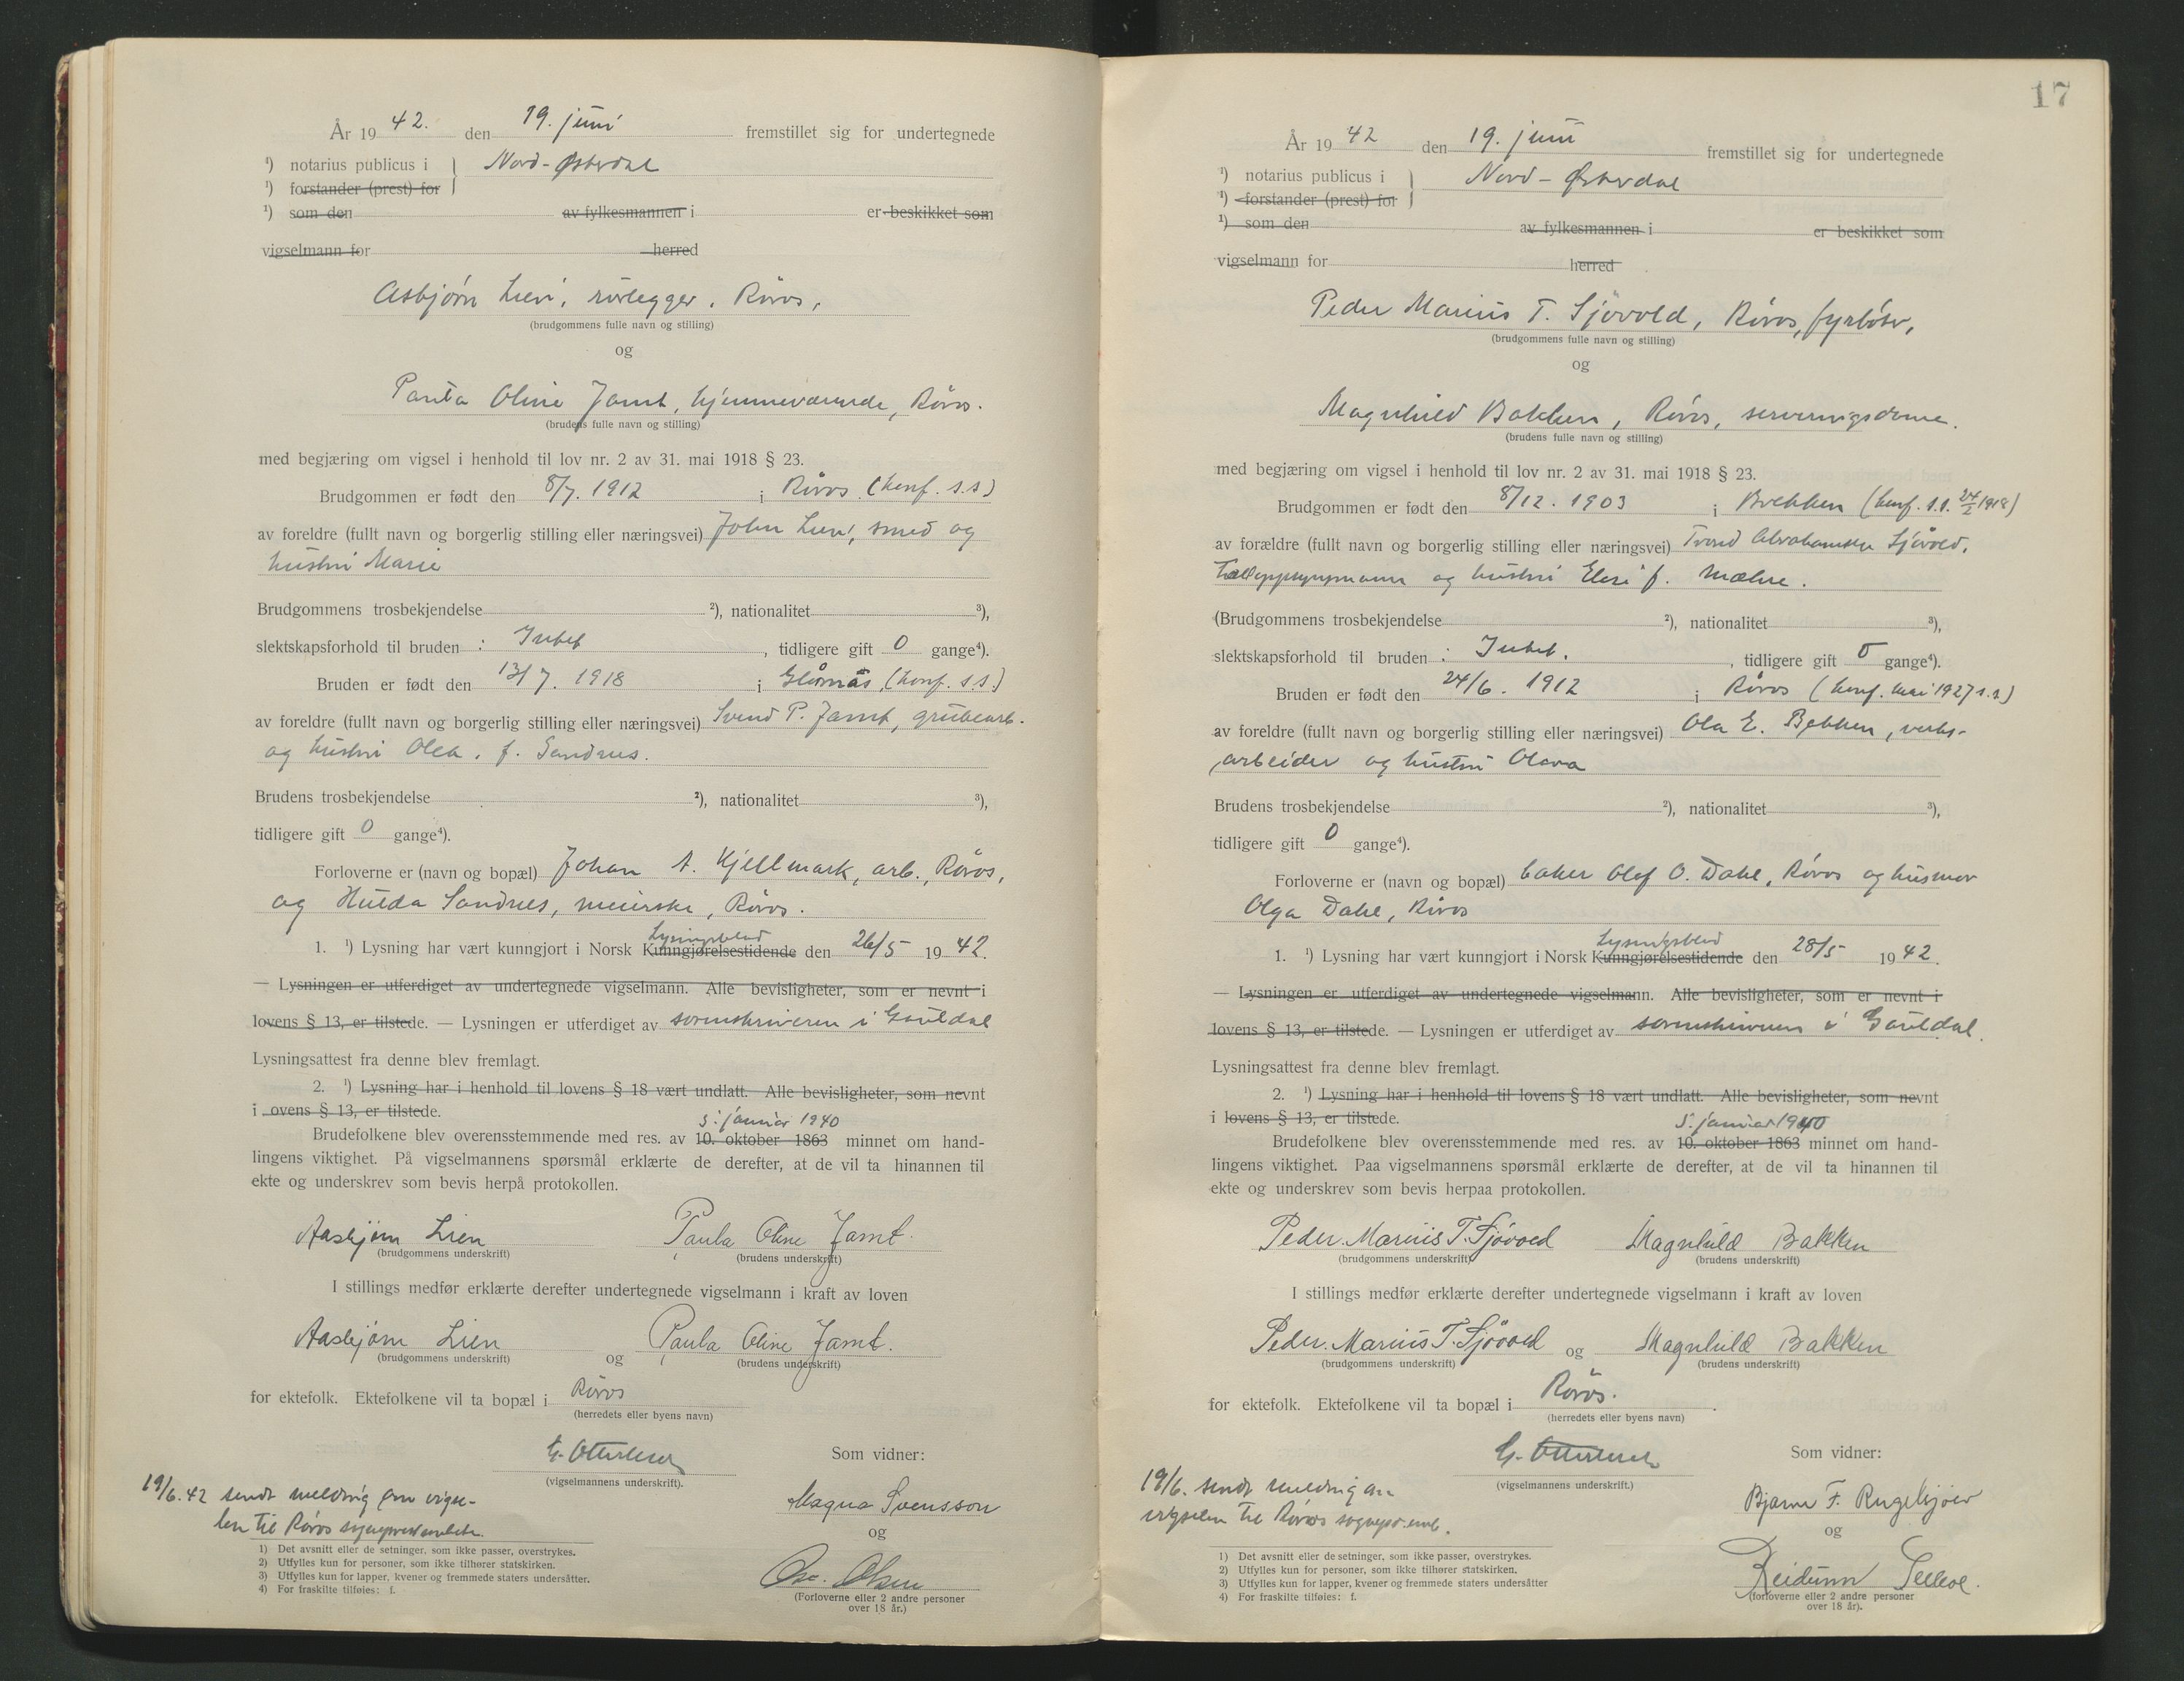 År 1942. den 19. juni fremstillet sig for undertegnede
¹) notarius publicus i } Nord-Østerdal
¹) forstander (prest) for
¹) som den av fylkesmannen i er beskikket som
vigselmann for herred
Asbjørn Lien, rørlegger, Røros,
(brudgommens fulle navn og stilling)
og
Paula Oline Jamt, hjemmeværende, Røros.
(brudens fulle navn og stilling)
med begjæring om vigsel i henhold til lov nr. 2 av 31. mai 1918 § 23.
Brudgommen er født den 8/7. 1912 i Røros (konf. s.s)
av foreldre (fullt navn og borgerlig stilling eller næringsvei) John Lien, smed og
hustru Marie
Brudgommens trosbekjendelse ²), nationalitet ³),
slektskapsforhold til bruden : Intet, tidligere gift 0 gange⁴).
Bruden er født den 13/7. 1918 i Glåmås, (konf. s.s.)
av foreldre (fullt navn og borgerlig stilling eller næringsvei) Svend P. Jamt, grubearb.
og hustru Olea, f. Sandnes.
Brudens trosbekjendelse ²), nationalitet ³),
tidligere gift 0 gange⁴).
Forloverne er (navn og bopæl) Johan A. Kjellmark, arb., Røros,
og Hulda Sandnes, meierske, Røros.
Lysingsblad
1. ¹) Lysning har vært kunngjort i Norsk Kunngjørelsestidende den 26/5 1942.
— Lysningen er utferdiget av undertegnede vigselmann. Alle bevisligheter, som er nevnt i
lovens § 13, er tilstede. — Lysningen er utferdiget av sorenskriveren i Gauldal
Lysningsattest fra denne blev fremlagt.
2. ¹) Lysning har i henhold til lovens § 18 vært undlatt. Alle bevisligheter, som nevnt
i ovens § 13, er tilstede.
5. januar 1940
Brudefolkene blev overensstemmende med res. av 10. oktober 1863 minnet om hand-
lingens viktighet. På vigselmannens spørsmål erklærte de derefter, at de vil ta hinannen til
ekte og underskrev som bevis herpå protokollen.
Aasbjørn Lien Paula Oline Jamt.
(brudgommens underskrift) (brudens underskrift)
I stillings medfør erklærte derefter undertegnede vigselmann i kraft av loven
Aasbjørn Lien og Paula Oline Jamt.
(brudgommens underskrift) (brudens underskrift)
for ektefolk. Ektefolkene vil ta bopæl i Røros
(herredets eller byens navn)
G. Ottesen
(vigselmannens underskrift).
Som vidner:
19/6.42 sendt melding om vigse-
len til Røros sogneprestembete.
Magna Svensson
og
Osc. Olsen
(Forloverne eller 2 andre personer
over 18 år.)
1) Det avsnitt eller de setninger, som ikke passer, overstrykes.
2) Utfylles kun for personer, som ikke tilhører statskirken.
3) Utfylles kun for lapper, kvener og fremmede staters undersåtter.
4) For fraskilte tilføies: f.
17
År 1942 den 19. juni fremstillet sig for undertegnede
¹) notarius publicus i } Nord-Østerdal
¹) forstander (prest) for
¹) som den av fylkesmannen i er beskikket som
vigselmann for herred
Peder Marius T. Sjøvold, Røros, fyrbøter,
(brudgommens fulle navn og stilling)
og
Magnhild Bakken, Røros, serveringsdame.
(brudens fulle navn og stilling)
med begjæring om vigsel i henhold til lov nr. 2 av 31. mai 1918 § 23.
Brudgommen er født den 8/12. 1903 i Brekken (konf. s.s. 24/2 1918)
av forældre (fullt navn og borgerlig stilling eller næringsvei) Trond Abrahamsen Sjøvold,
og hustru Elen f. Mælne.
(Brudgommens trosbekjendelse ²), nationalitet ³),
slektskapsforhold til bruden : Intet. , tidligere gift 0 gange⁴).
Bruden er født den 24/6. 1912 i Røros (konf. mai 1927 s.s)
av foreldre (fullt navn og borgerlig stilling eller næringsvei) Ola E. Bakken, verks-
arbeider og hustru Olava
Brudens trosbekjendelse ²), nationalitet ³),
tidligere gift 0 gange⁴).
Forloverne er (navn og bopæl) baker Olaf O. Dahl, Røros og husmor
Olga Dahl, Røros
Lysingsblad
1. ¹) Lysning har vært kunngjort i Norsk Kunngjørelsestidende den 28/5 1942.
— Lysningen er utferdiget av undertegnede vigselmann. Alle bevisligheter, som er nevnt i
lovens § 13, er tilstede. — Lysningen er utferdiget av sorenskriveren i Gauldal.
Lysningsattest fra denne blev fremlagt.
2. ¹) Lysning har i henhold til lovens § 18 vært undlatt. Alle bevisligheter, som nevnt
i lovens § 13, er tilstede.
5. januar 1940
Brudefolkene blev overensstemmende med res. av 10. oktober 1863 minnet om hand-
lingens viktighet. Paa vigselmannens spørsmål erklærte de derefter, at de vil ta hinannen til
ekte og underskrev som bevis herpaa protokollen.
Peder. Marius T. Sjøvold Magnhild Bakken
(brudgommens underskrift) (brudens underskrift)
I stillings medfør erklærte derefter undertegnede vigselmann i kraft av loven
Peder. Marius T. Sjøvold og Magnhild Bakken
(brudgommens underskrift) (brudens underskrift)
for ektefolk. Ektefolkene vil ta bopæl i Røros.
(herredets eller byens navn)
G. Ottesen
(vigselmannens underskrift.)
Som vidner:
19/6. sendt melding om
vigselen til Røros sognepr.emb.
Bjarne F.
og
Reidunn
(forloverne eller 2 andre personer
over 18 år).
1) Det avsnitt eller de setninger, som ikke passer, overstrykes.
2) Utfylles kun for personer, som ikke tilhører statskirken.
3) Utfylles kun for lapper, kvener og fremmede staters undersåtter
4) For fraskilte tilføies: f.